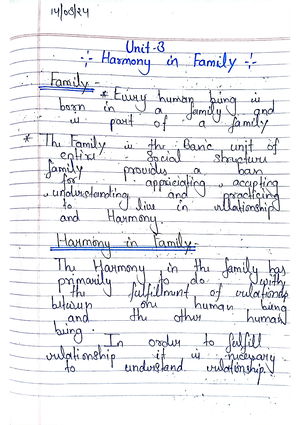 14/03/24
Unit-3
-:- Harmony in Family -:-
Family -
* Every human being is
born in a family and
is part of a family
* The Family is the Basic unit of
entire Social structure
family provides a base
for appriciating, accepting
, understanding and practicing
to live in relationship
and Harmony.
Harmony in Family-
The Harmony in the family has
primarily to do with
the fulfillment of relationship
between one human being
and the other human
being.
In order to fulfill
relationship it is necessary
to understand relationship.